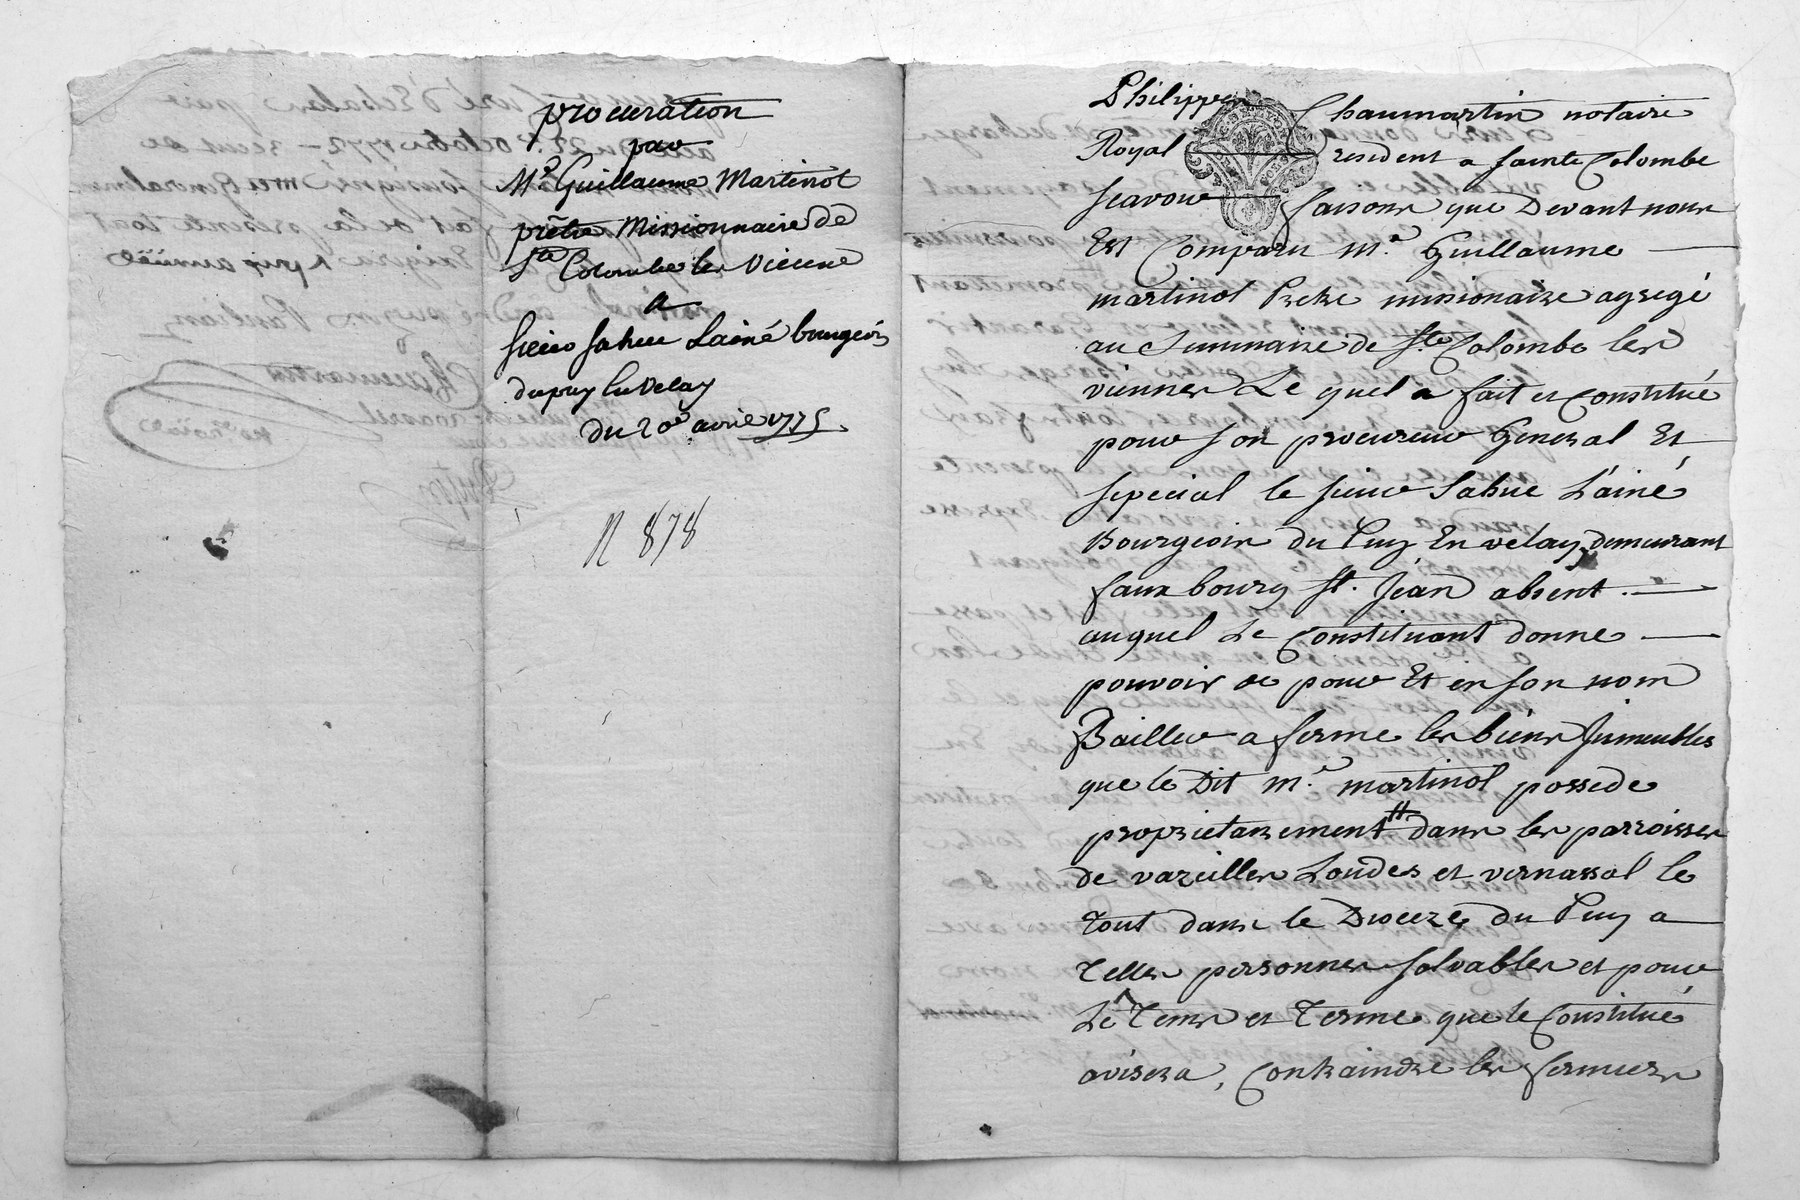 procuration
par
Mre Guillaume Martinol
prêtre Missionnaire de
Ste Colombe les Vienne
a
sieur Sahuc Lainé bourgeois
du puy En Velay
du 20e avril 1775
N 878
Philippe Chaumartin notaire
Royal resident a sainte Colombe
scavoir faisons que Devant nous
Est Comparu Me. Guillaume
martinol Pretre missionaire agregé
au Seminaire de Ste Colombe les
vienne Le quel a fait et Constitué
pour son procureur General Et
special le sieur Sahuc L'ainé
Bourgeois du Puy En velay demeurant
faux bourg St. Jean absent.
auquel Le Constituant donne
pouvoir de pour Et en son nom
Bailler a ferme les biens Jmmeubles
que le Dit Me. martinol possede
proprietairement dans les parroisses
de vazeilles Loudes et vernassal le
Tout dans le Dioceze du Puy a
Telles personnes solvables et pour
Le Tems et Terme que le Constitué
avisera, Contraindre les fermiers